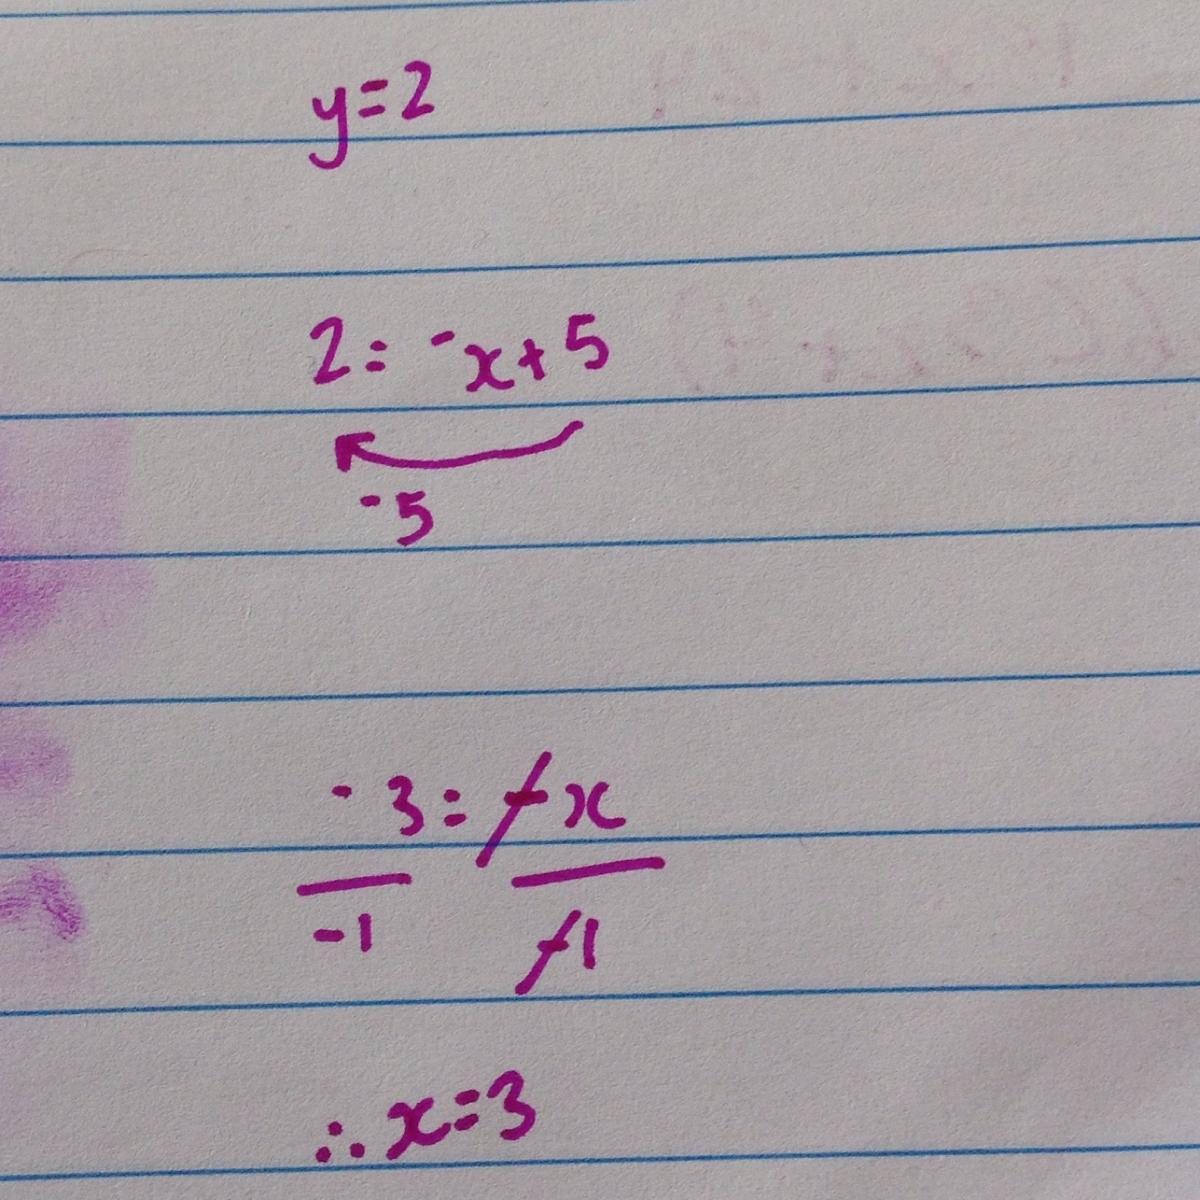 y=2
2= -x+5
-5
-3=-x
-1 -1
∴x=3